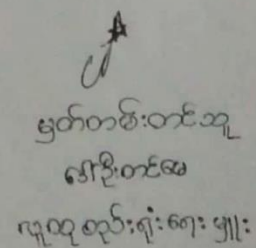 မှတ်တမ်းတင်သူ
ဒေါ်ဦးတင်မေ
လူထုစည်းရုံးရေးမှူး